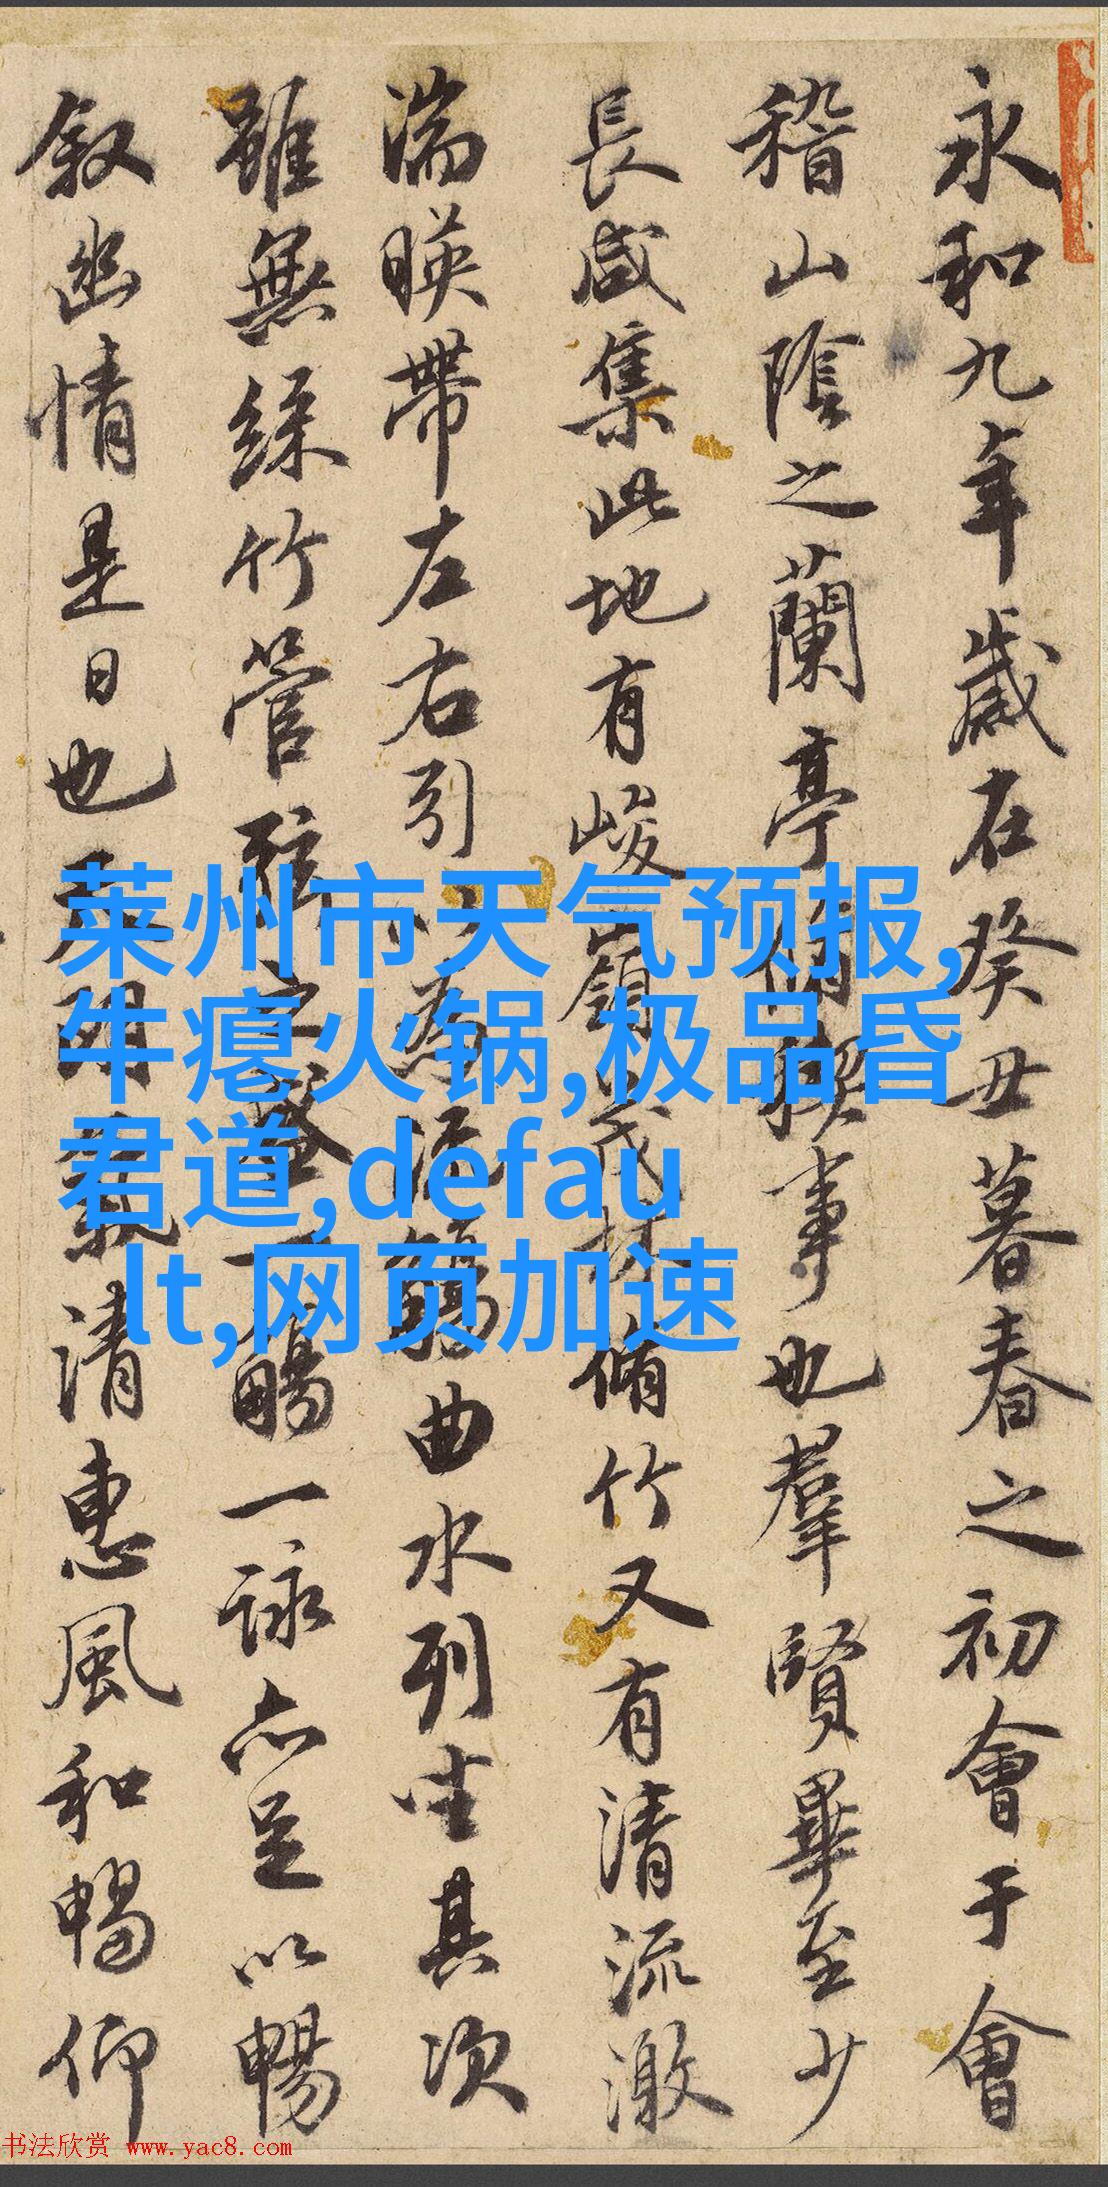 永和九年歲在癸丑暮春之初會于會
稽山陰之蘭亭脩禊事也羣賢畢至少
長咸集此地有峻嶺茂林脩竹又有清流激
湍暎帶左右引以為流觴曲水列坐其次
雖無絲竹管弦之盛一觴一詠亦足以暢
叙幽情是日也天朗氣清惠風和暢仰
莱州市天气预报,
牛瘪火锅,极品昏
君道,defau
lt,网页加速
书法欣赏 www.yac8.com